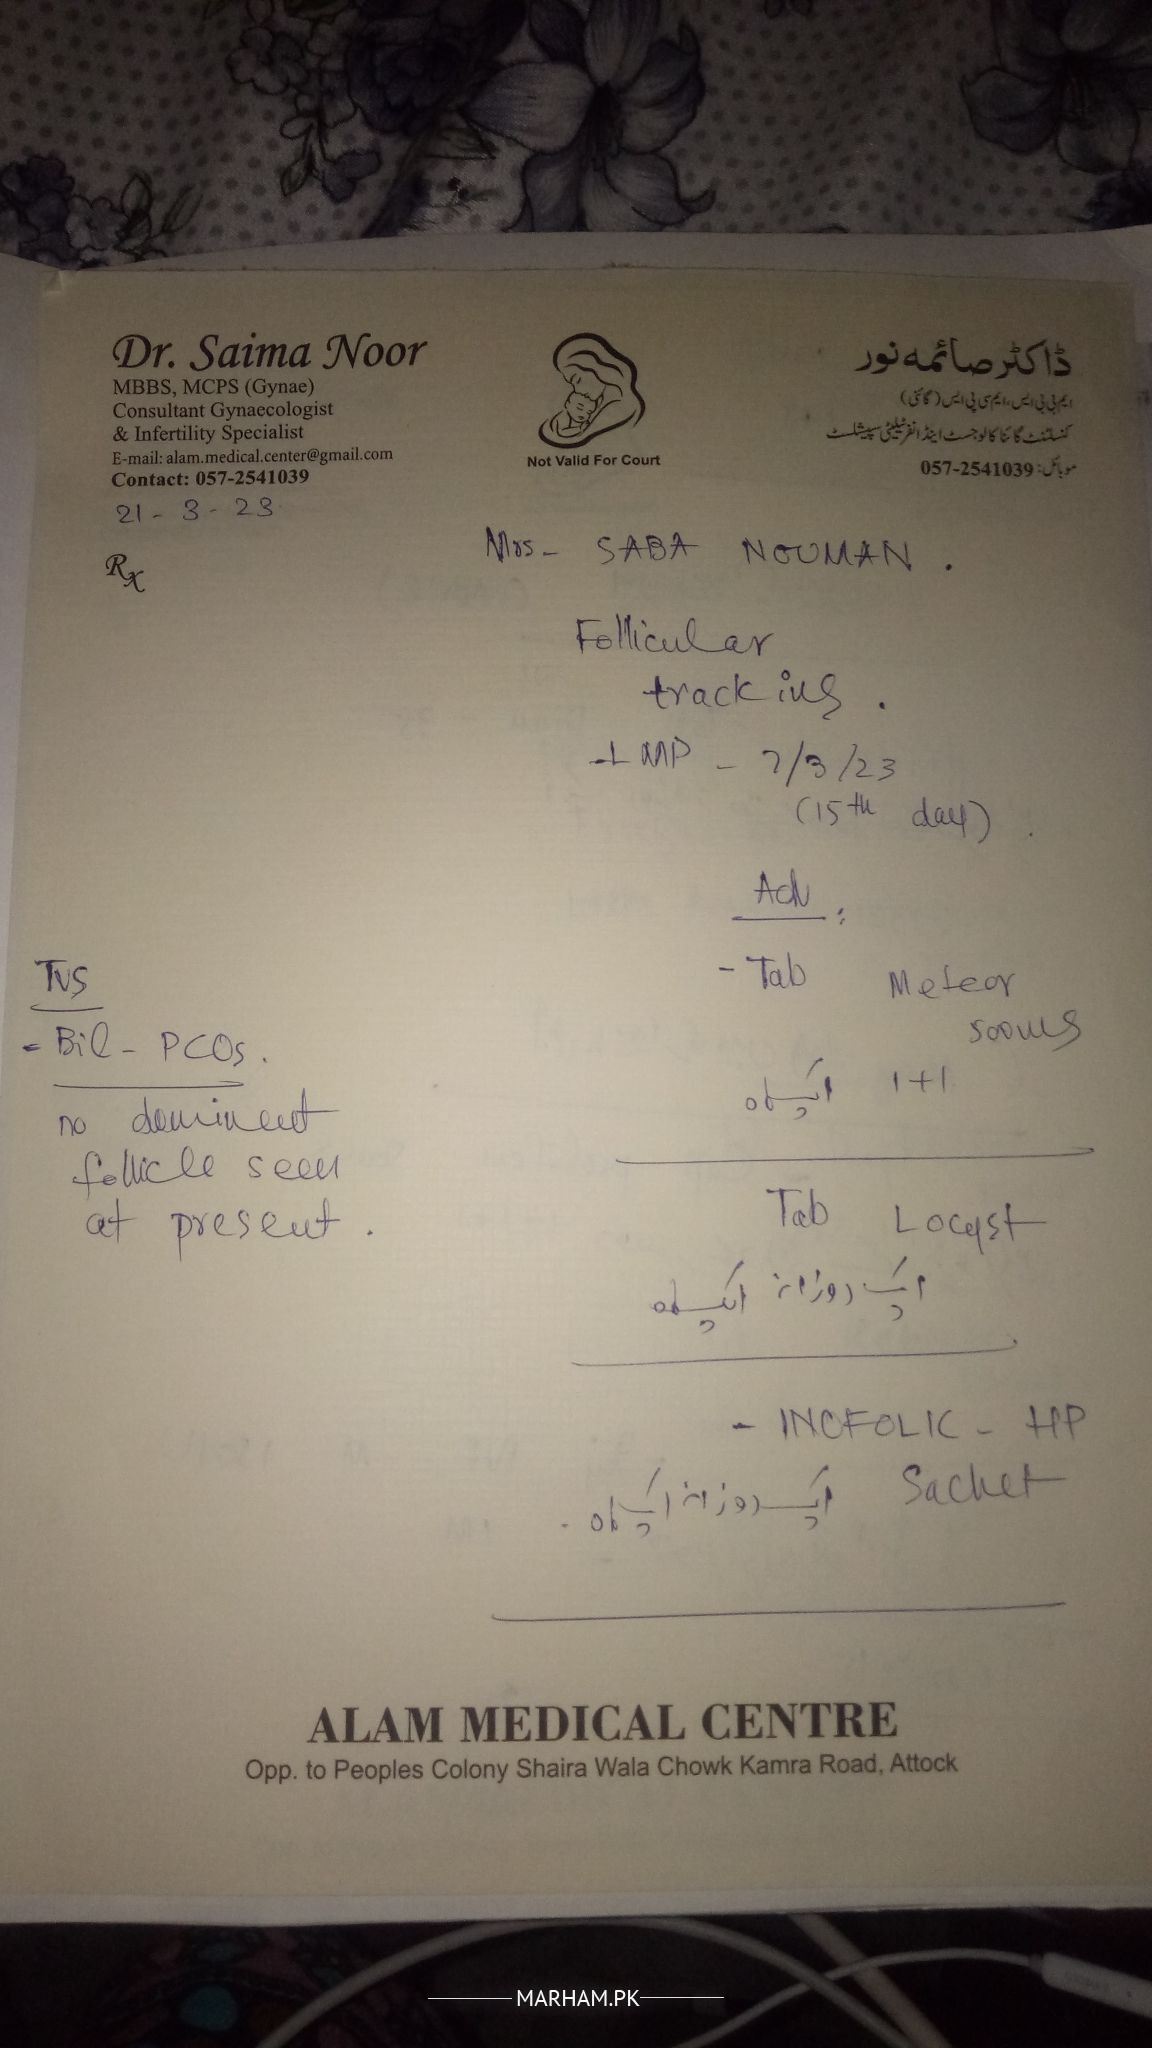 Dr. Saima Noor
MBBS, MCPS (Gynae)
Consultant Gynaecologist
& Infertility Specialist
E-mail: alam.medical.center@gmail.com
Contact: 057-2541039
Not Valid For Court
ڈاکٹر صائمہ نور
ایم بی بی ایس، ایم سی پی ایس (گائنی)
کنسلٹنٹ گائناکالوجسٹ اینڈ انفرٹیلیٹی سپیشلسٹ
موبائل: 057-2541039
21 - 3 - 23
Rx
Mrs - SABA NOUMAN.
Follicular
tracking.
LMP - 7/3/23
(15th day)
Adv:
- Tab Meteor
500mg
1+1 ایک ماہ
Tab Locyst
ایک روزانہ ایک ماہ
- INOFOLIC - HP
Sachet
ایک روزانہ ایک ماہ
TVS
- Bil - PCOs.
no dominent
follicle seen
at present.
ALAM MEDICAL CENTRE
Opp. to Peoples Colony Shaira Wala Chowk Kamra Road, Attock
MARHAM.PK